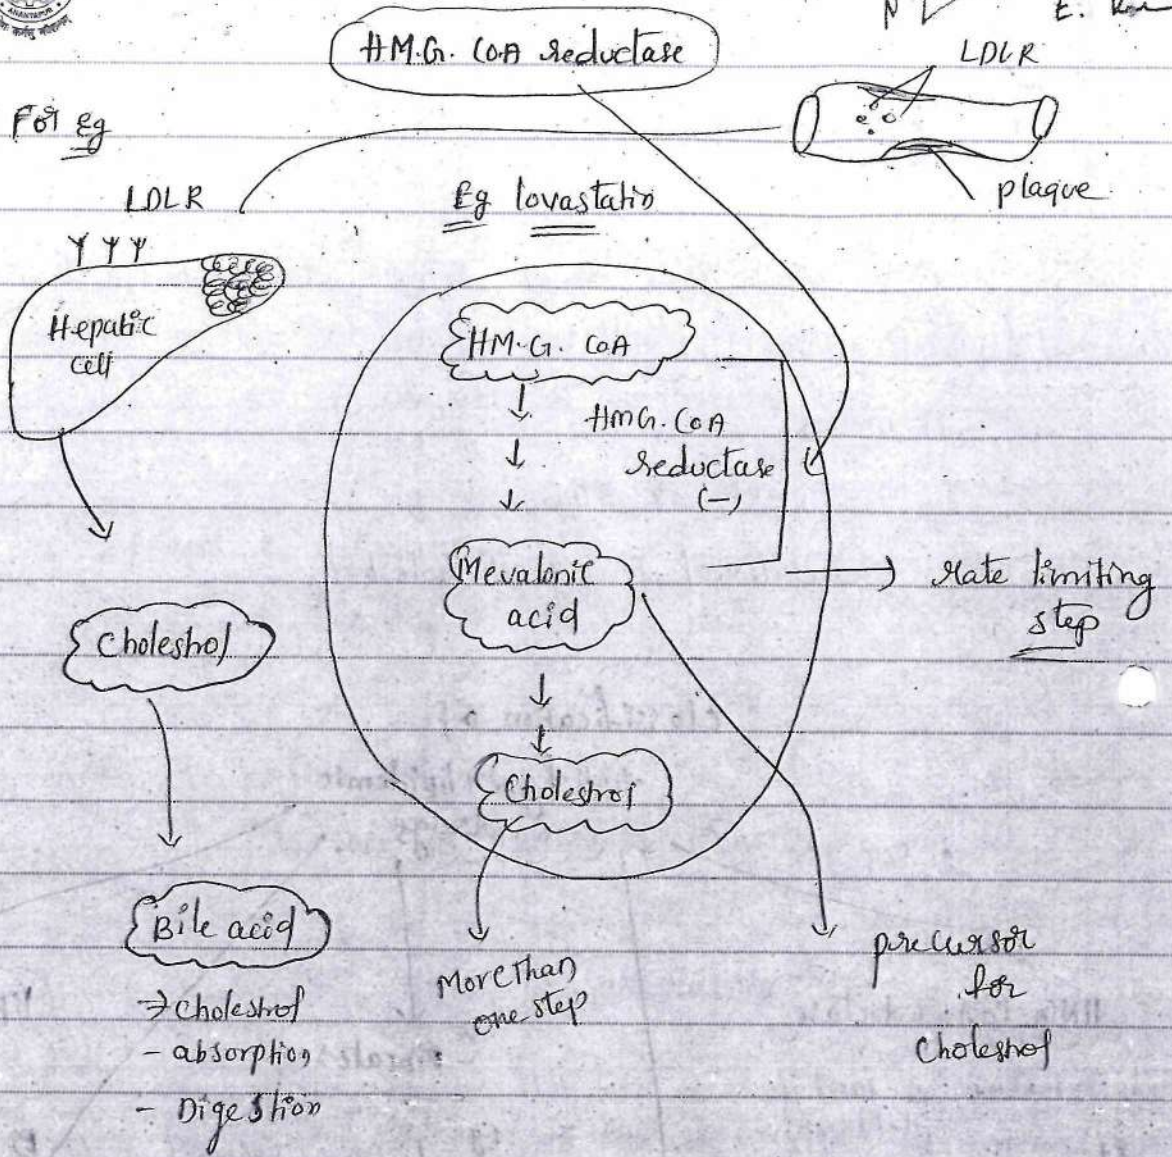 ANANTAPUR
H.M.G. COA reductase
LDLR
For Eg
plaque
LDLR
Eg lovastatin
Hepatic
cell
HM.G. COA
HMG.COA
reductase
(-)
Mevalonic
acid
rate limiting
step
Choleshol
Choleshol
Bile acid
→ Choleshol
- absorption
- Digestion
More than
one step
precursor
for
Choleshol